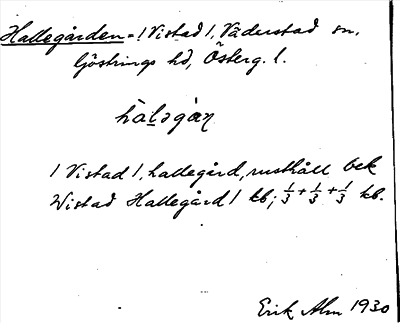 Hallegården = / Vistad /, Väderstad sn,
Göstrings hd, Österg. l.
hàlegàṇ
/ Vistad /, hallegård, rusthåll bek
Wistad Hallegård / kb; 1/3 + 1/3 + 1/3 kb.
Erik Alm 1930